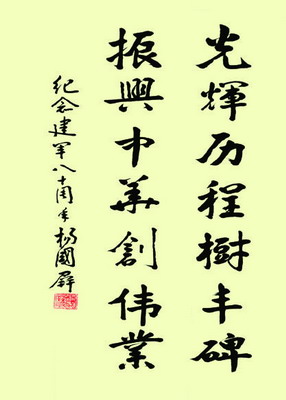 光輝历程樹丰碑
振興中华創伟業
紀念建军八十周年杨國屏